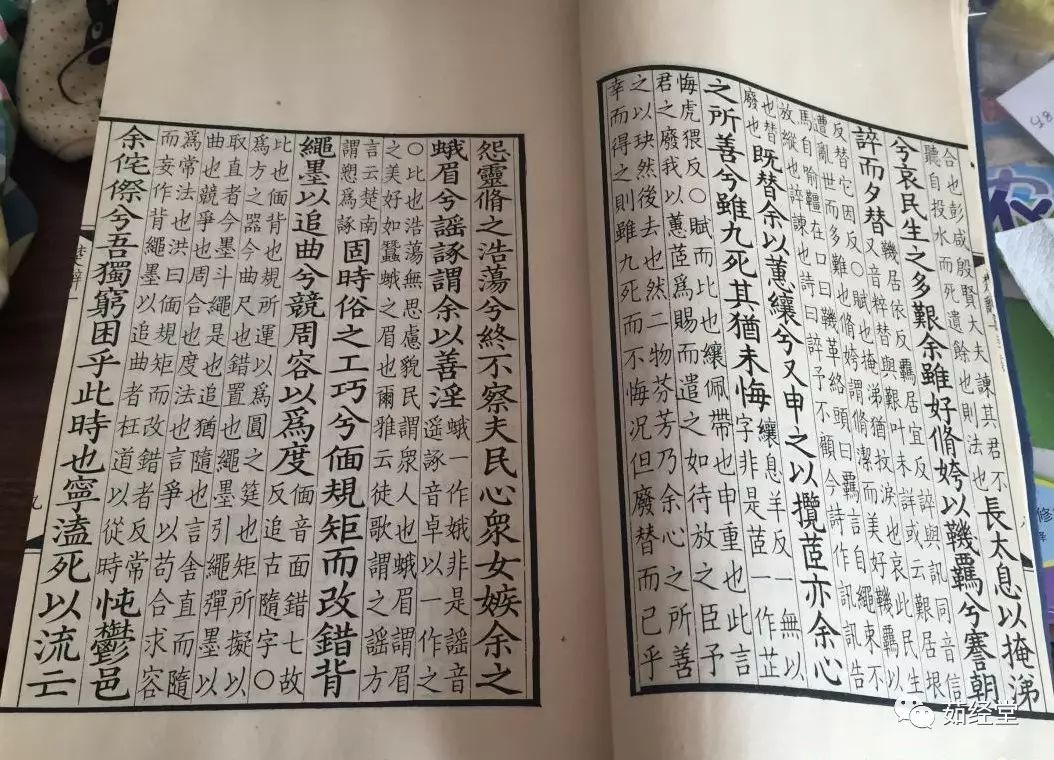 合也彭咸殷賢大夫諫其君不
聽自投水而死遺餘也則法也
長太息以掩涕
兮哀民生之多艱余雖好脩姱以鞿羈兮謇朝
誶而夕替
鞿居依反羈居宜反誶與訊同音信
又音粹替與艱叶未詳或云艱居垠
反替它因反○賦也掩涕猶抆淚也哀此民生
遭亂世而多難也脩姱謂脩潔而美好鞿羈以
馬自喻韁在口曰鞿革絡頭曰羈言自繩束不
放縱也誶諫也詩曰誶予不顧今詩作訊訊告
也替
廢也
既替余以蕙纕兮又申之以攬茝亦余心
之所善兮雖九死其猶未悔
纕息羊反一無以
字非是茝一作芷
悔虎猥反○賦而比也纕佩帶也申重也此言
君之廢我以蕙茝爲賜而遣之如待放之臣予
之以玦然後去也然二物芬芳乃余心之所善
幸而得之則雖九死而不悔况但廢替而已乎
怨靈脩之浩蕩兮終不察夫民心衆女嫉余之
蛾眉兮謡諑謂余以善淫
蛾一作娥非是謡音
遥諑音卓以一作之
○比也浩蕩無思慮貌民謂衆人也蛾眉謂眉
之美好如蠶蛾之眉也爾雅云徒歌謂之謡方
言云楚南
謂愬爲諑
固時俗之工巧兮偭規矩而改錯背
繩墨以追曲兮競周容以爲度
偭音面錯七故
反追古隨字○
比也偭背也規所運以爲圓之筳也矩所擬以
爲方之器今曲尺也錯置也繩墨引繩彈墨以
取直者今墨斗繩是也追猶隨也言舍直而隨
曲也競爭也周合也度法也言爭以苟合求容
爲常法也洪曰偭規矩而改錯者反常
而妄作背繩墨以追曲者枉道以從時
忳鬱邑
余侘傺兮吾獨窮困乎此時也寧溘死以流亡
九
茹经堂